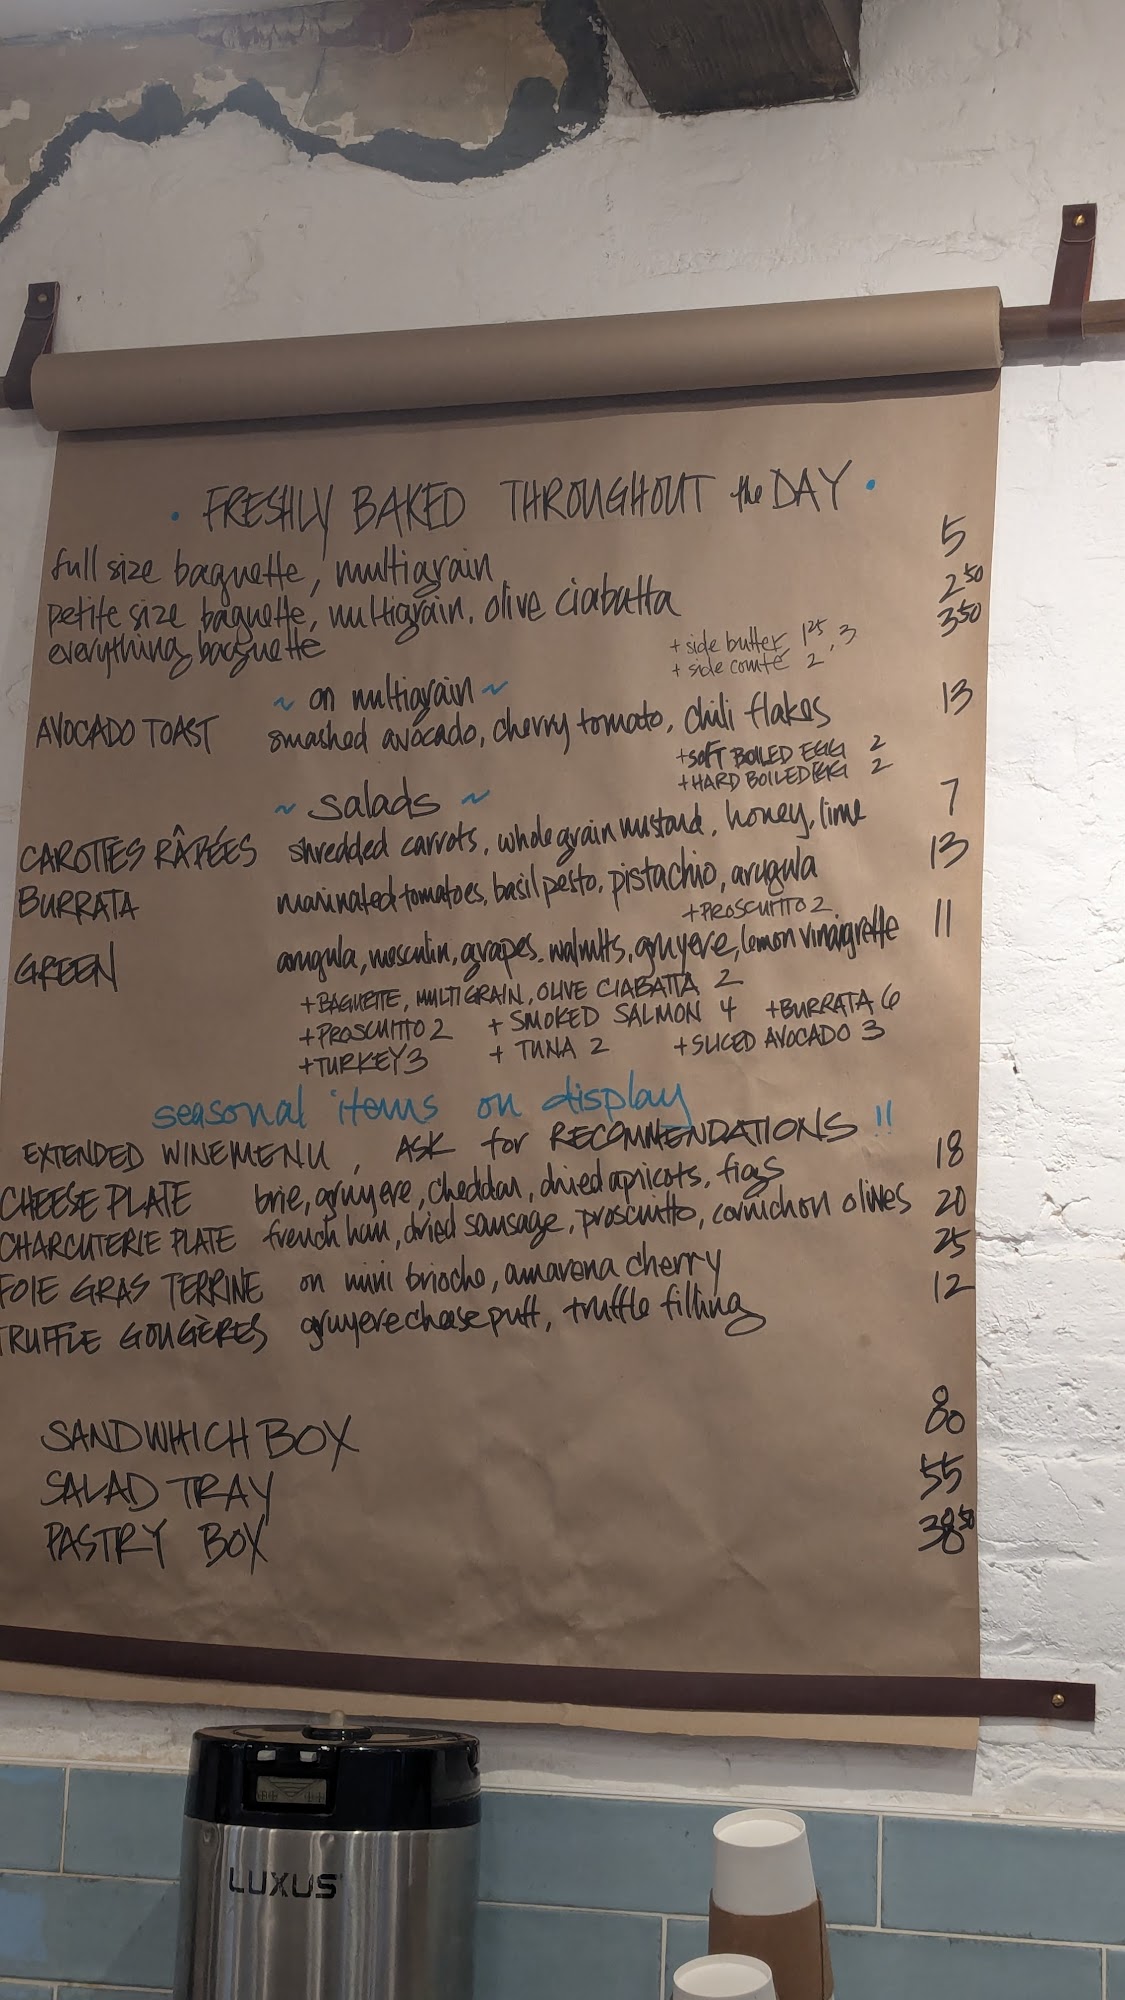 · FRESHLY BAKED THROUGHOUT the DAY ·
full size baguette, multigrain 5
petite size baguette, multigrain, olive ciabatta 2 50
everything baguette 3 50
+ side butter 1 25, 3
+ side comté 2
~ on multigrain ~
AVOCADO TOAST smashed avocado, cherry tomato, chili flakes 13
+ SOFT BOILED EGG 2
+ HARD BOILED EGG 2
~ salads ~
CAROTTES RÂPÉES shredded carrots, whole grain mustard, honey, lime 7
BURRATA marinated tomatoes, basil pesto, pistachio, arugula 13
+ PROSCUITTO 2
GREEN arugula, mesculin, grapes, walnuts, gruyere, lemon vinaigrette 11
+ BAGUETTE, MULTIGRAIN, OLIVE CIABATTA 2
+ PROSCUITTO 2 + SMOKED SALMON 4 + BURRATA 6
+ TURKEY 3 + TUNA 2 + SLICED AVOCADO 3
seasonal items on display
EXTENDED WINE MENU, ASK for RECOMMENDATIONS !!
CHEESE PLATE brie, gruyere, cheddar, dried apricots, figs 18
CHARCUTERIE PLATE french ham, dried sausage, prosciutto, cornichon olives 20
FOIE GRAS TERRINE on mini brioche, amarena cherry 25
TRUFFLE GOUGÈRES gruyere cheese puff, truffle filling 12
SANDWHICH BOX 80
SALAD TRAY 55
PASTRY BOX 38 50
LUXUS